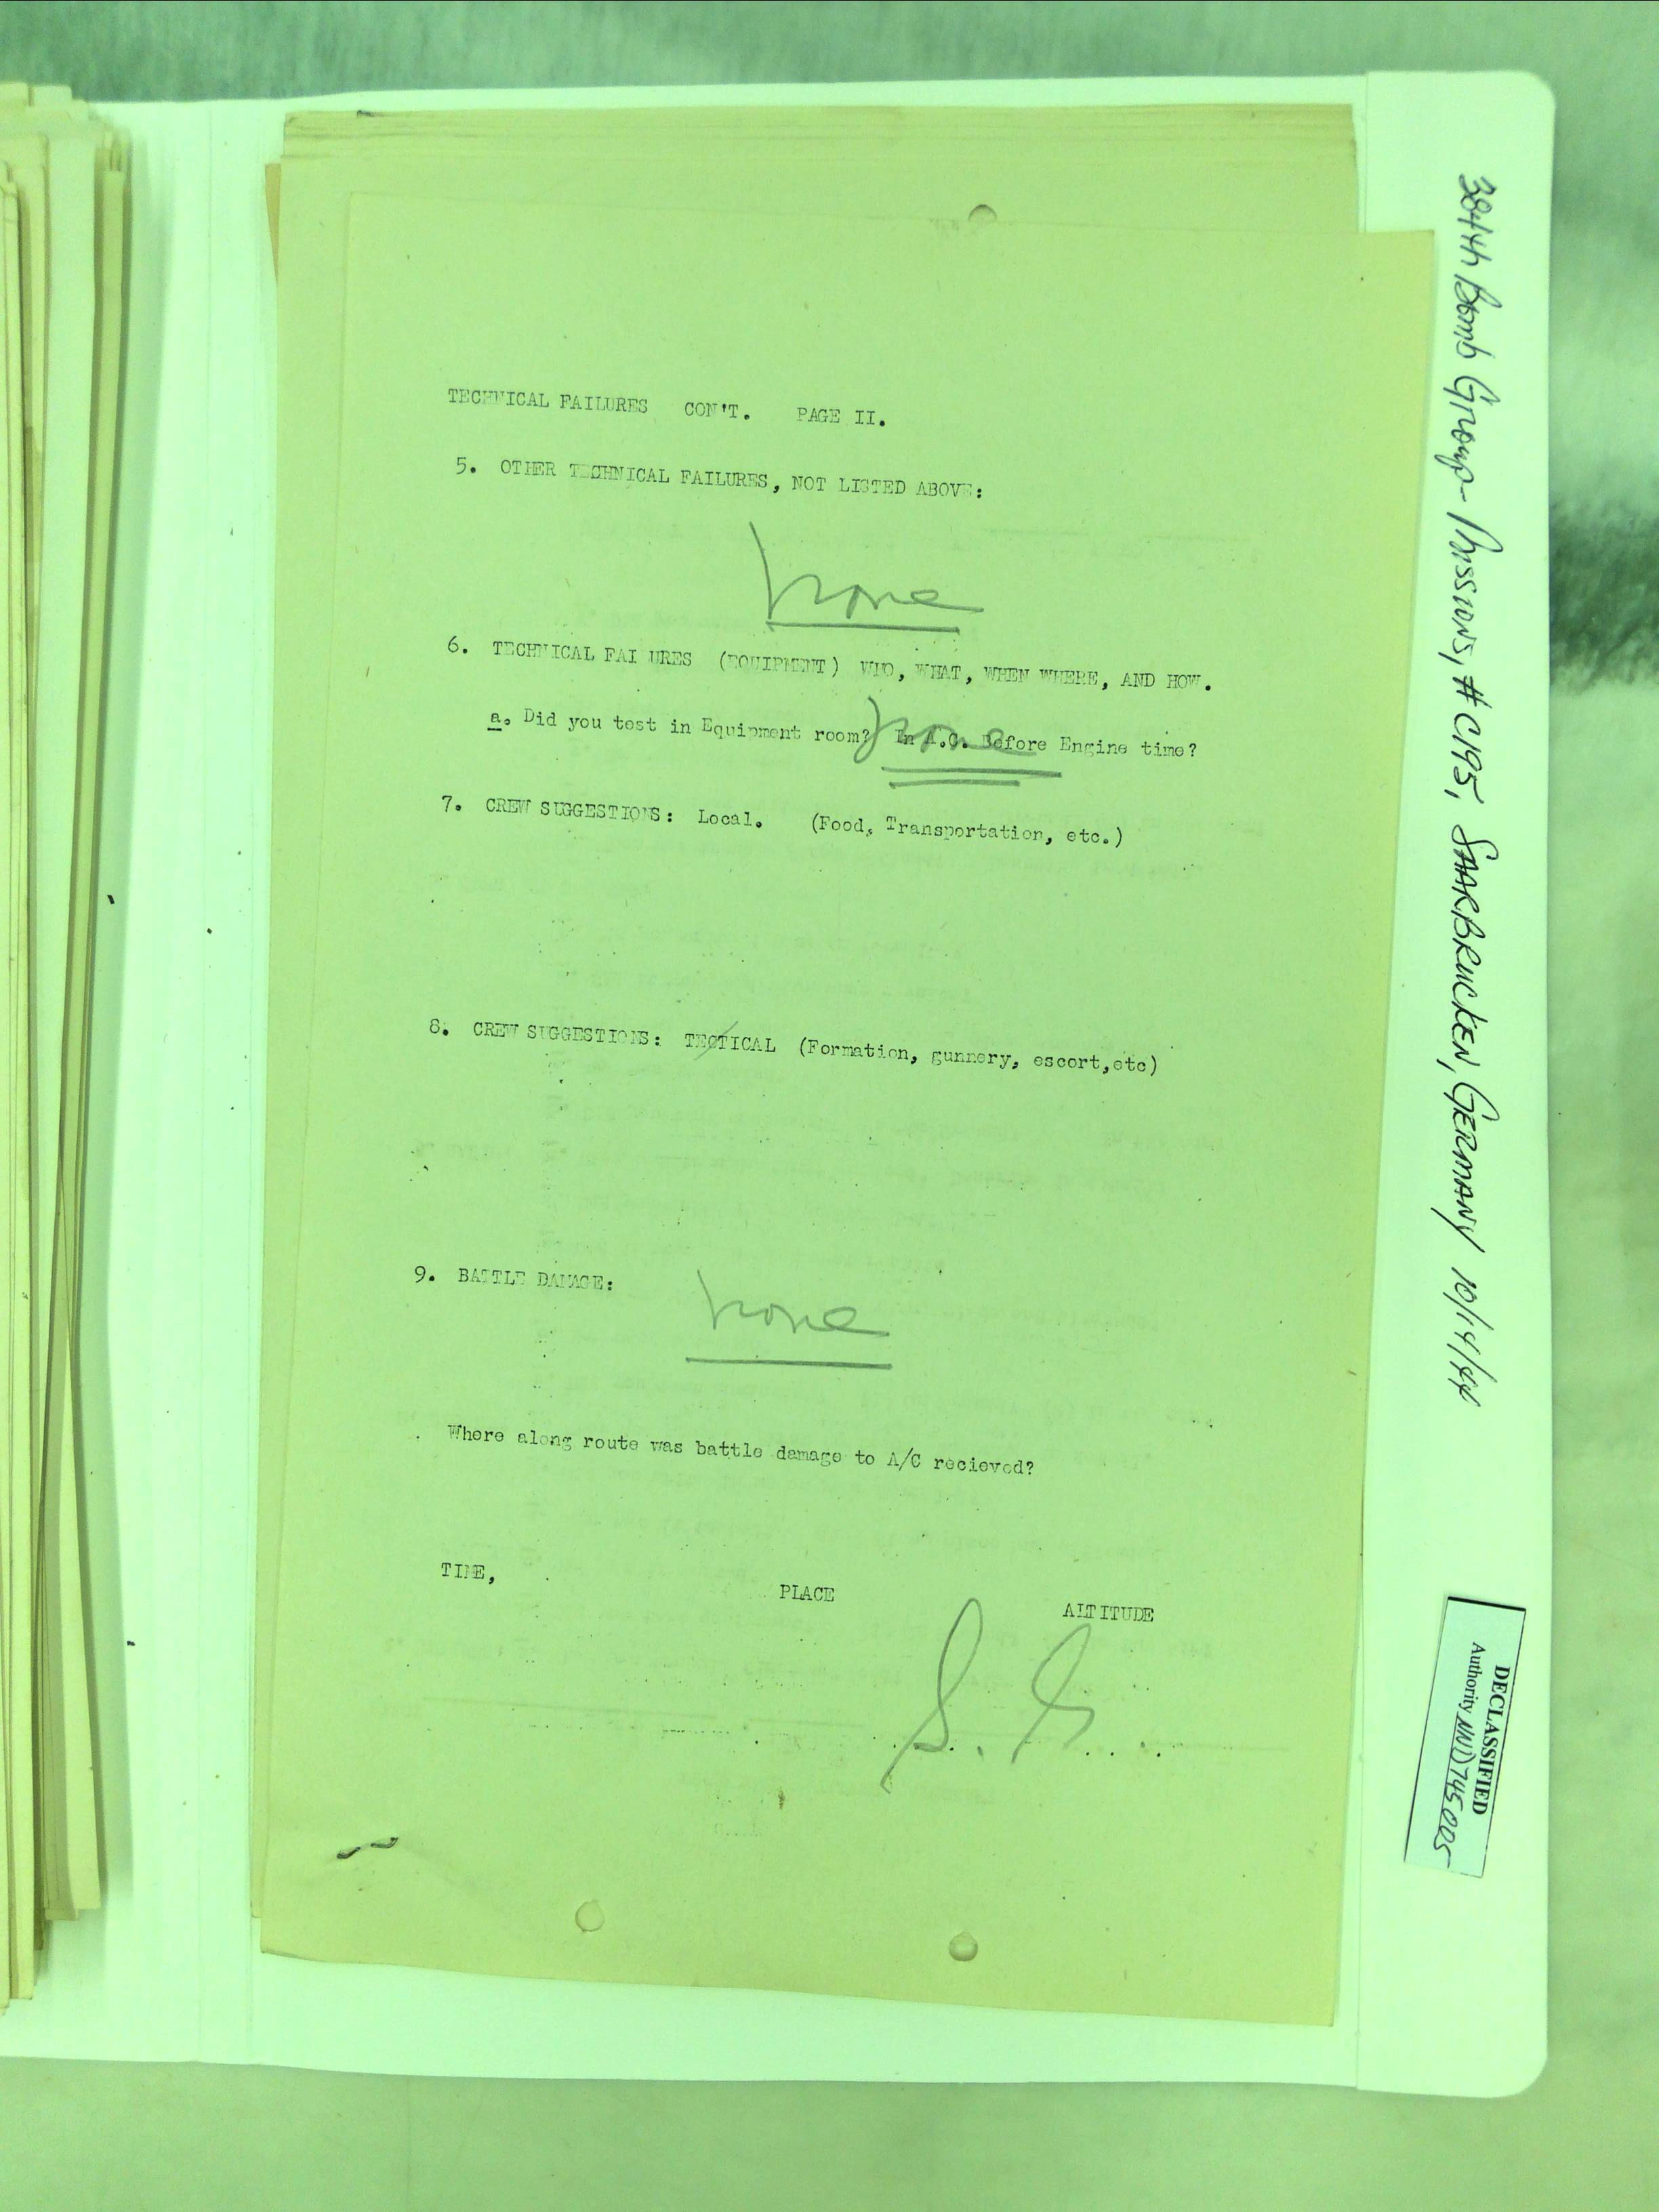 TECHNICAL FAILURES CON'T. PAGE II.
5. OTHER TECHNICAL FAILURES, NOT LISTED ABOVE:
none
6. TECHNICAL FAI URES (EQUIPMENT) WHO, WHAT, WHEN WHERE, AND HOW.
a. Did you test in Equipment room? In A.C. Before Engine time?
none
7. CREW SUGGESTIONS: Local. (Food, Transportation, etc.)
8. CREW SUGGESTIONS: TECTICAL (Formation, gunnery, escort,etc)
9. BATTLE DAMAGE:
none
Where along route was battle damage to A/C recieved?
TIME, PLACE ALTITUDE
384th Bomb Group - Missions, #C195, SAARBRUCKEN, GERMANY 10/14/44
DECLASSIFIED
Authority NND745005